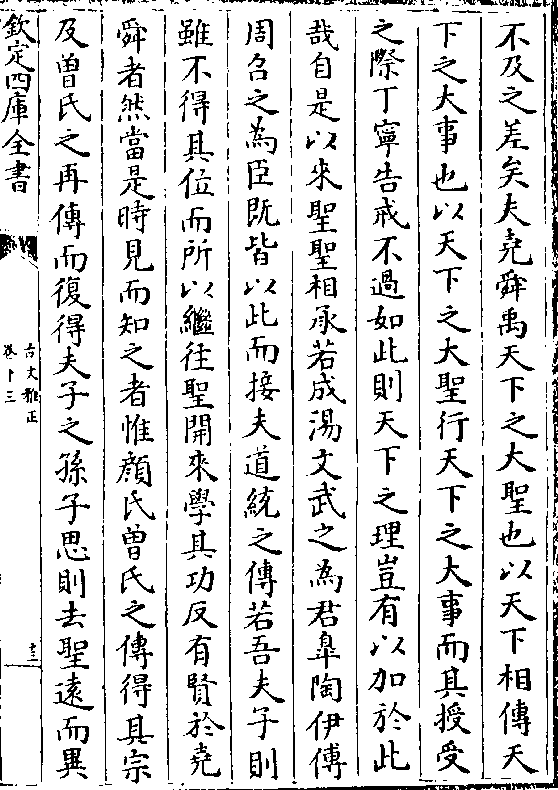 不及之差矣夫堯舜禹天下之大聖也以天下相傳天
下之大事也以天下之大聖行天下之大事而其授受
之際丁寧告戒不過如此則天下之理豈有以加於此
哉自是以來聖聖相承若成湯文武之為君臯陶伊傅
周召之為臣既皆以此而接夫道統之傳若吾夫子則
雖不得其位而所以繼往聖開來學其功反有賢於堯
舜者然當是時見而知之者惟顔氏曾氏之傳得其宗
及曾氏之再傳而復得夫子之孫子思則去聖遠而異
欽定四庫全書
古文雅正
卷十三